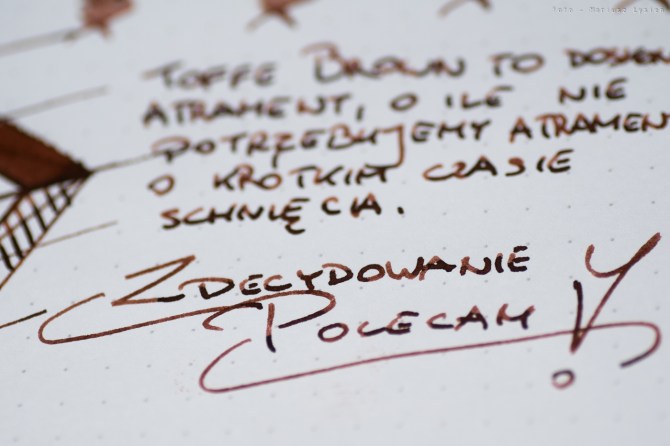 Foto - Mariusz Łysień
TOFFE BROWN TO DOSKON
ATRAMENT, O ILE NIE
POTRZEBUJEMY ATRAMENT
O KRÓTKIM CZASIE
SCHNIĘCIA.
ZDECYDOWANIE
POLECAM!